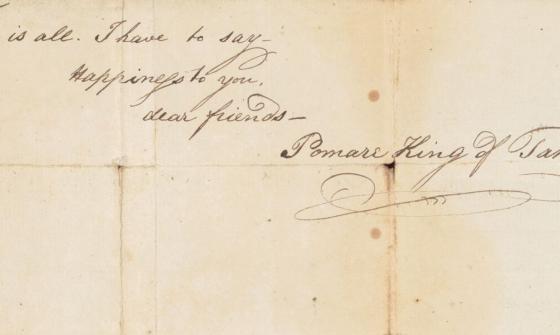 is all. I have to say—
Happiness to you,
dear friends—
Pomare King of Tah